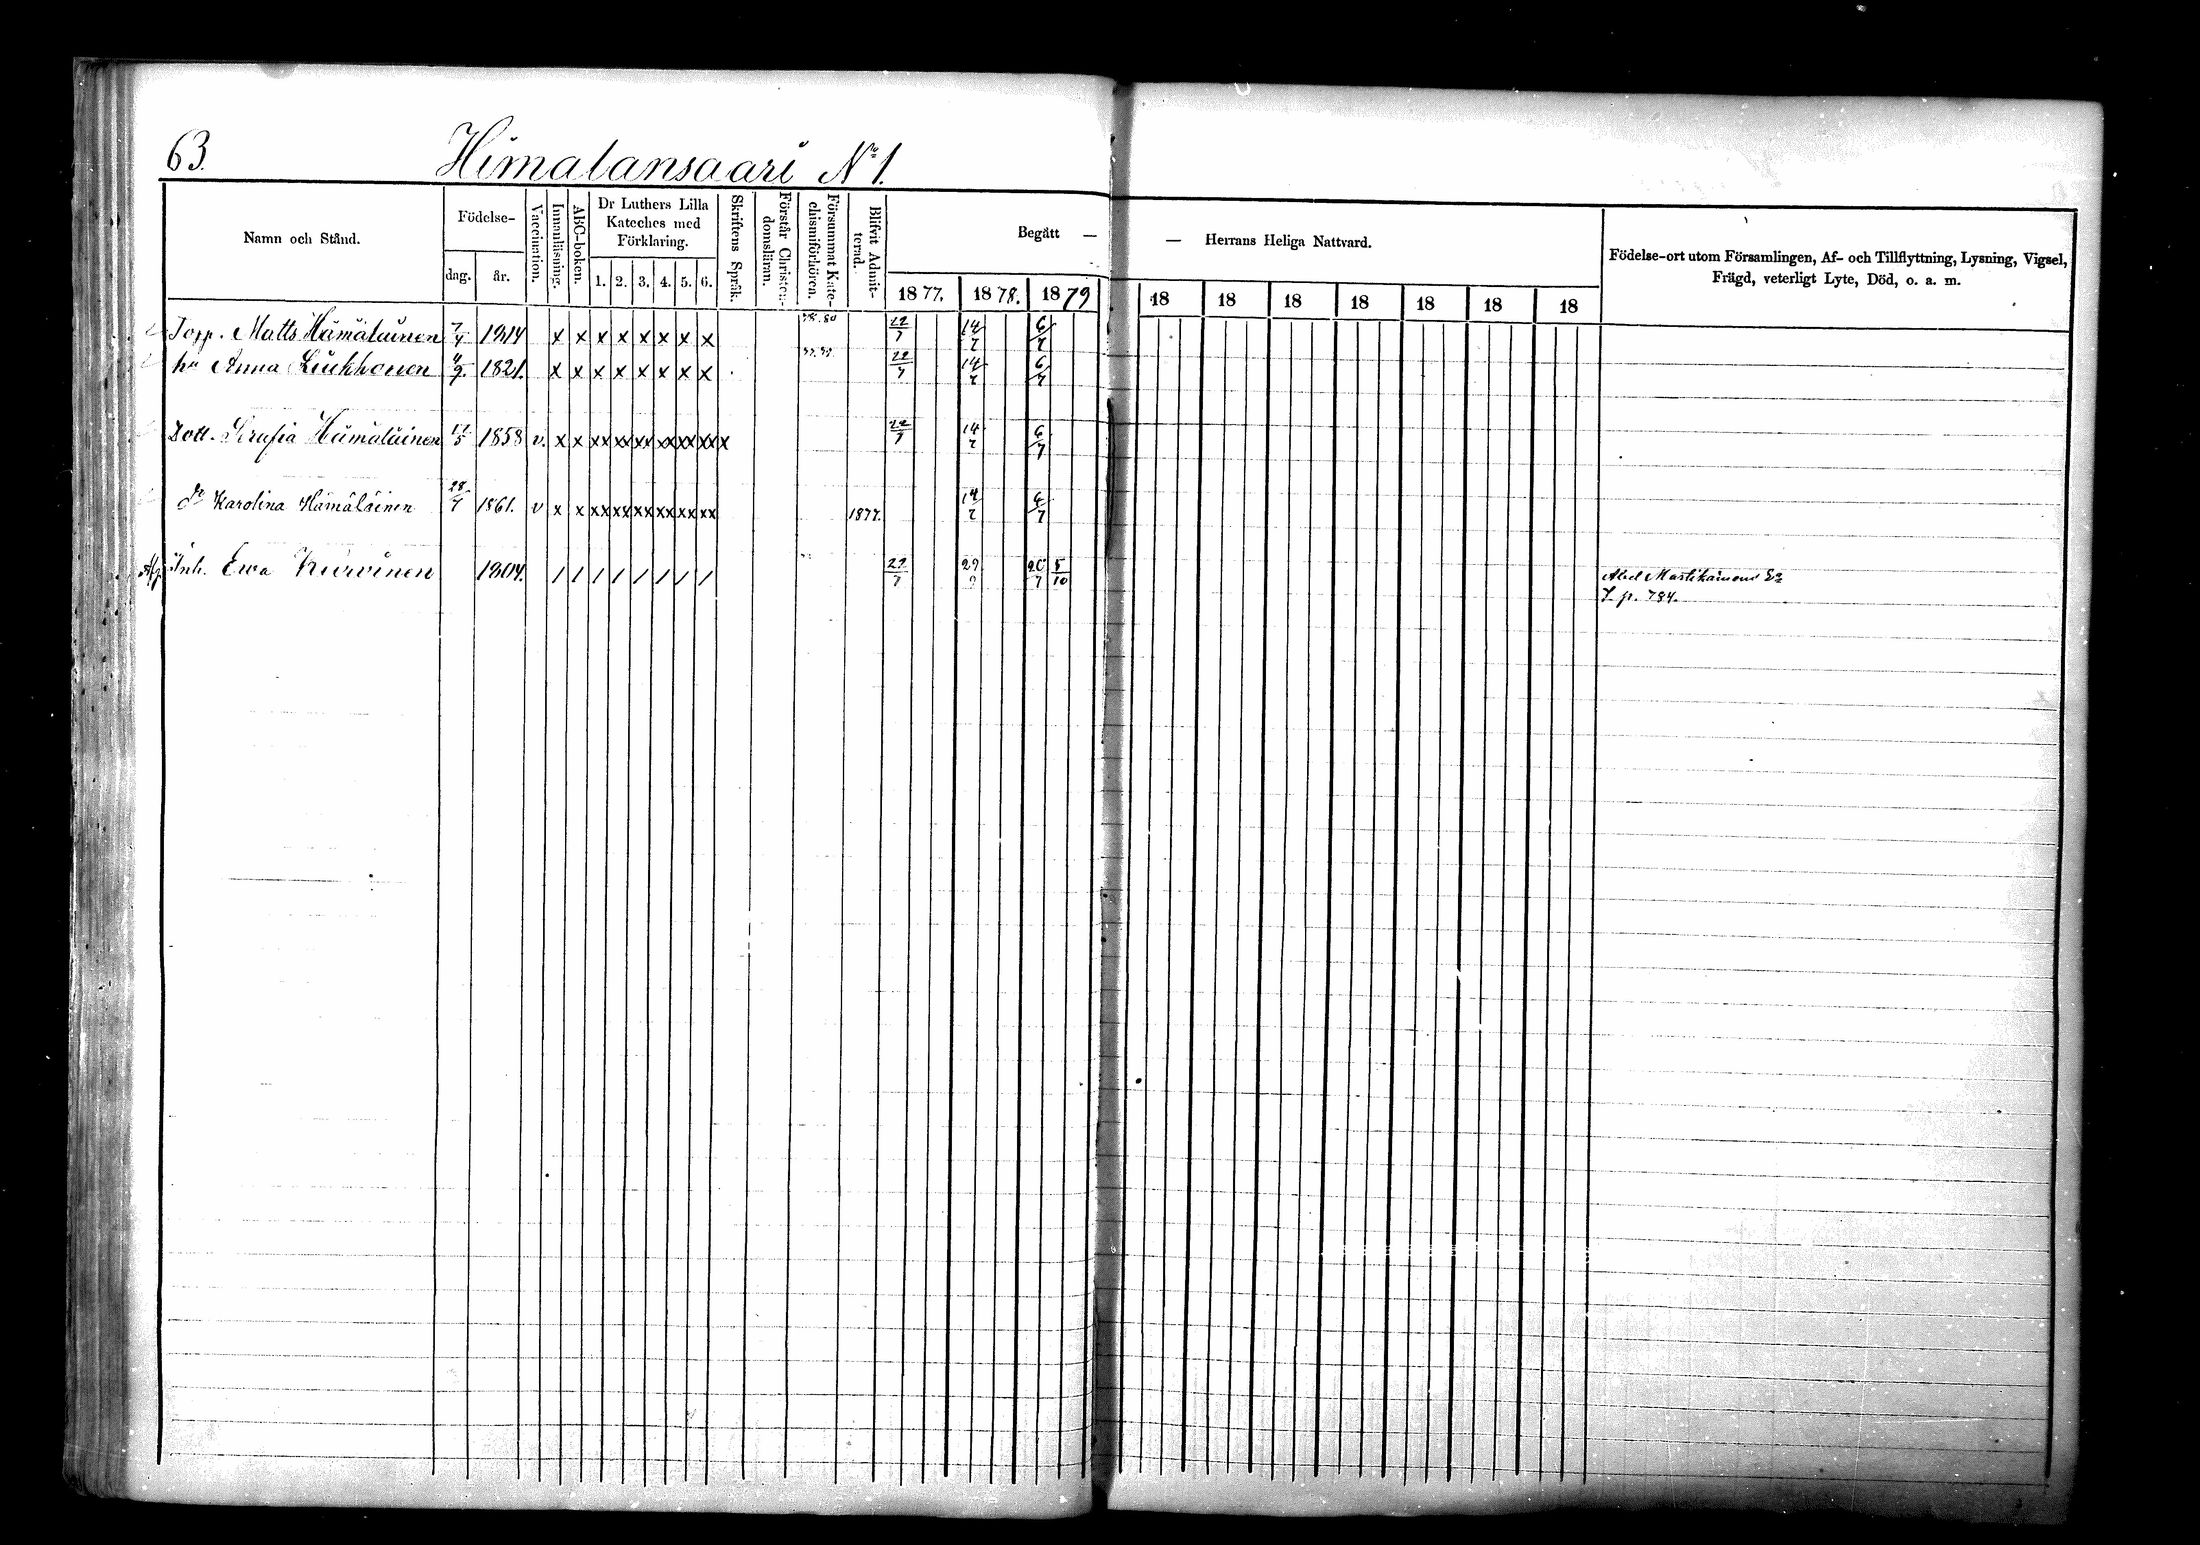 63.
Himalansaari No 1.
Namn och Stånd.
Födelse-
dag. år.
Vaccination.
Innanläsning.
ABC-boken.
Dr Luthers Lilla
Kateches med
Förklaring.
1. 2. 3. 4. 5. 6.
Skriftens Språk.
Förstår Christen-
domsläran.
Försummat Kate-
chismiförhören.
Blifvit Admit-
terad.
Begått — — Herrans Heliga Nattvard.
1877. 1878. 1879 18 18 18 18 18 18 18
Födelse-ort utom Församlingen, Af- och Tillflyttning, Lysning, Vigsel,
Frägd, veterligt Lyte, Död, o. a. m.
Torp. Matts Hämäläinen 7/4 1814 x x x x x x x x 22/7 14/7 6/7
hu Anna Liukkonen 1821. x x x x x x x x 22/7 14/7 6/7
Dott. Serafia Hämäläinen 1858 v. x x xx xx xx xx xx xx x 22/7 14/7 6/7
do Karolina Hämäläinen 1861. v x x xx xx xx xx xx xx 1877. 14/7 6/7
Inh. Ewa 1804. / / / / / / / / 22/7 5/10
Abel Martikainens
p. 784.